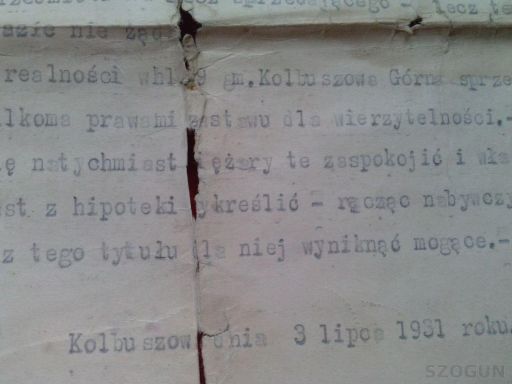 sprzedającego - lecz te
razie nie żąd
realności whl. 9 gm.Kolbuszowa Górna sprze
lkoma prawami zastawu dla wierzytelności.-
ę natychmiast ciężary te zaspokoić i wła
st z hipoteki wykreślić - ręcząc nabywczy
z tego tytułu dla niej wyniknąć mogące.-
Kolbuszowa dnia 3 lipca 1931 roku.
SZOGUN